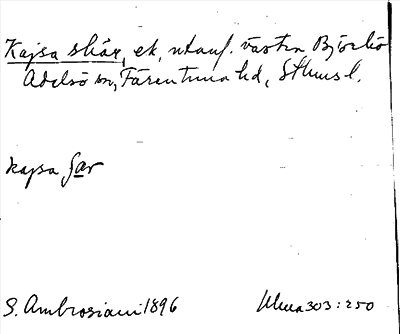 Kajsa skär, ek, utanf. västra Björkö
Adelsö sn, Färentuna hd, Sthms l.
kajsa ʃar
S. Ambrosiani 1896 Uma 303:250